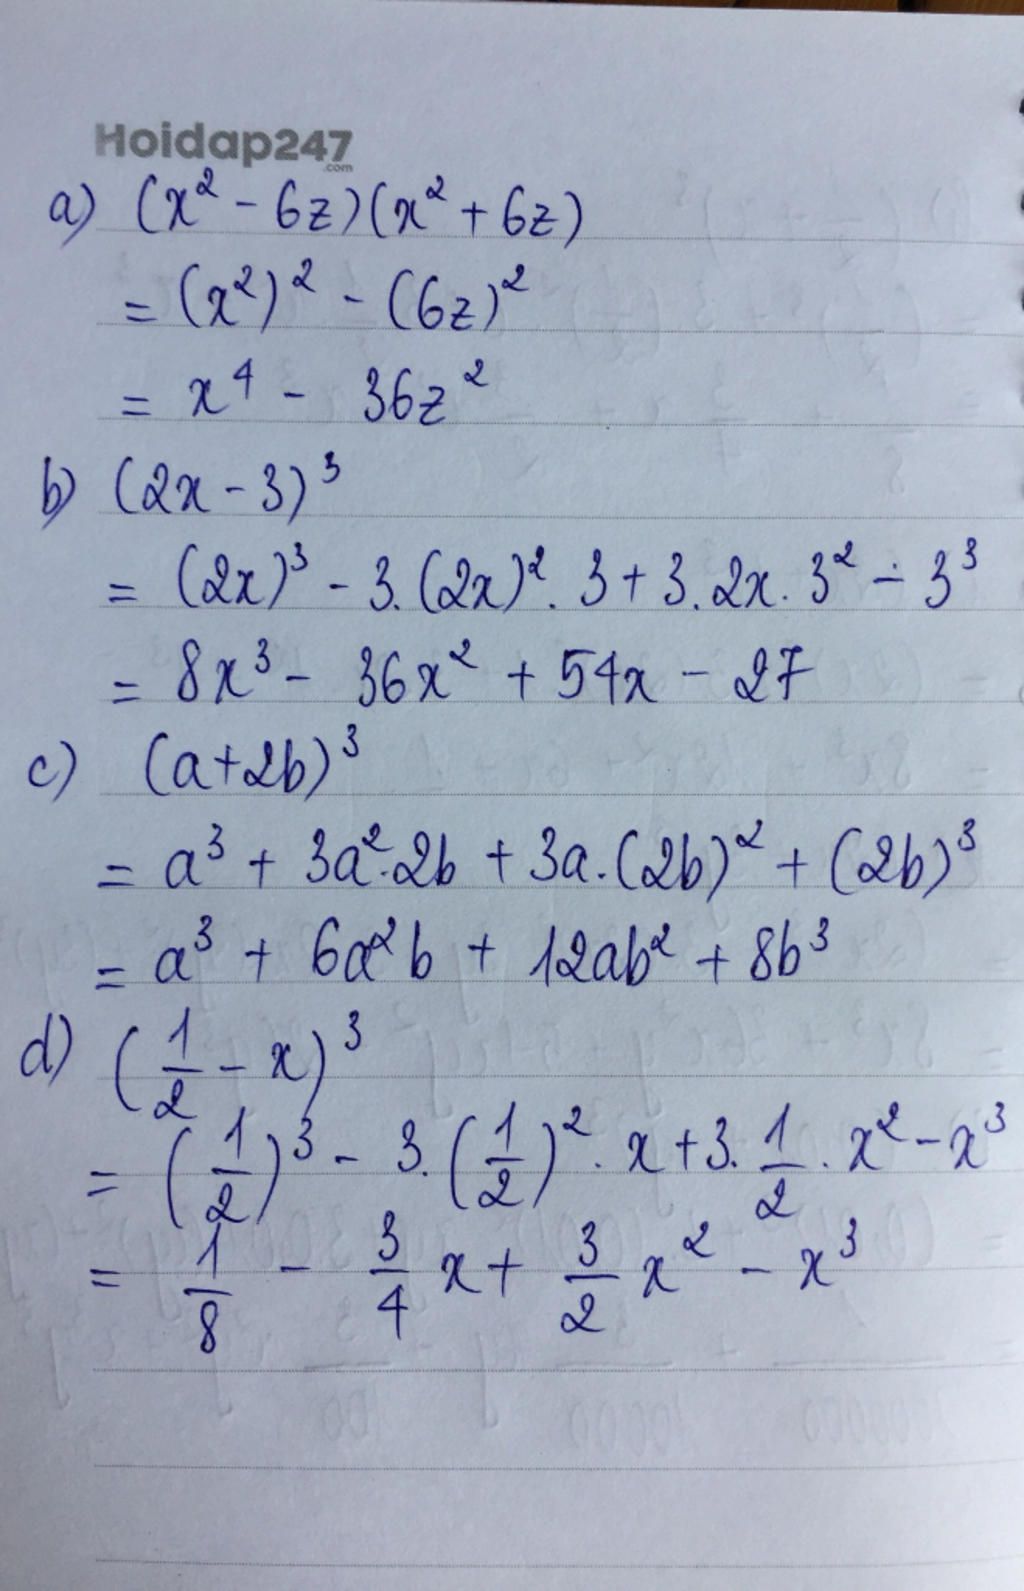 Hoidap247
.com
a) (x² - 6z)(x² + 6z)
= (x²)² - (6z)²
= x⁴ - 36z²
b) (2x - 3)³
= (2x)³ - 3.(2x)². 3 + 3. 2x. 3² - 3³
= 8x³ - 36x² + 54x - 27
c) (a+2b)³
= a³ + 3a².2b + 3a.(2b)² + (2b)³
= a³ + 6a²b + 12ab² + 8b³
d) (1/2 - x)³
= (1/2)³ - 3.(1/2)². x + 3. 1/2 . x² - x³
= 1/8 - 3/4 x + 3/2 x² - x³